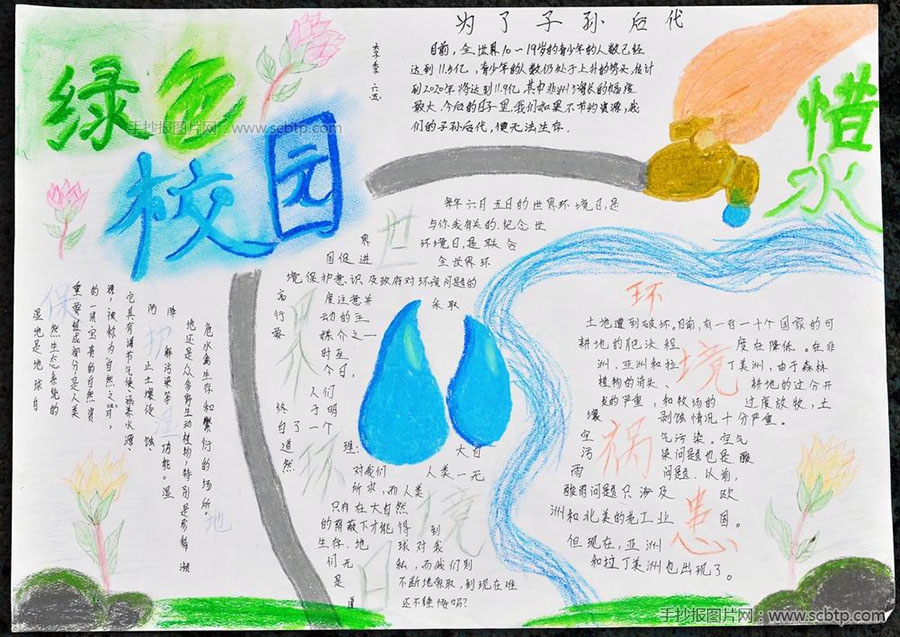 绿色
校园
为了子孙后代
目前,全世界10-19岁的青少年的人数已经
达到11.5亿,青少年的人数仍处于上升的势头,估计
到2020年将达到11.9亿,其中非洲增长的幅度
最大.今后的日子里,我们如果不节约资源,我
们的子孙后代,便无法生存.
惜
水
手抄报图片网:www.scbtp.com
每年六月五日的世界环境日,是
与你我有关的.纪念世
界
环境日,是联合
国促进
全世界环
境保护意识及政府对环境问题的
度注意并
采取
行
动的主
要
媒介之一
时至
今日,
人们
终
于明
白了一个
道
理:
大自
然
对我们
人类一无
所求,而人类
只有在大自然
的荫蔽下才能得
到
生存.地
球对我
们无
私,而我们则
是
不断地索取,到现在难
道
还不锺悔吗?
世
界
环
境
日
环
境
祸
患
土地遭到破坏.目前,有一百一十个国家的可
耕地的肥沃程
度在降低。在非
洲、亚洲和拉
丁美洲,由于森林
植物的消失、
耕地的过分开
发的严重,和牧场的
过度放牧,土
壤
剥蚀情况十分严重。
空
气污染。空气
污
染问题也是酸
雨
问题.以前,
酸雨问题只涉及
欧
洲和北美的老工业
国。
但现在,亚洲
和拉丁美洲也出现了。
保
护
湿
地
湿地是地球自
然生态系统的
重要组成部分,是人类
的最宝贵的自然资
源,被称为自然之肾,
它具有调节气候、涵养水源、
防
止土壤侵
蚀、
降
解污染等
功能。湿
地还是众多野生动植物,特别是
濒
危水禽生存和繁衍的场所。
手抄报图片网:www.scbtp.com